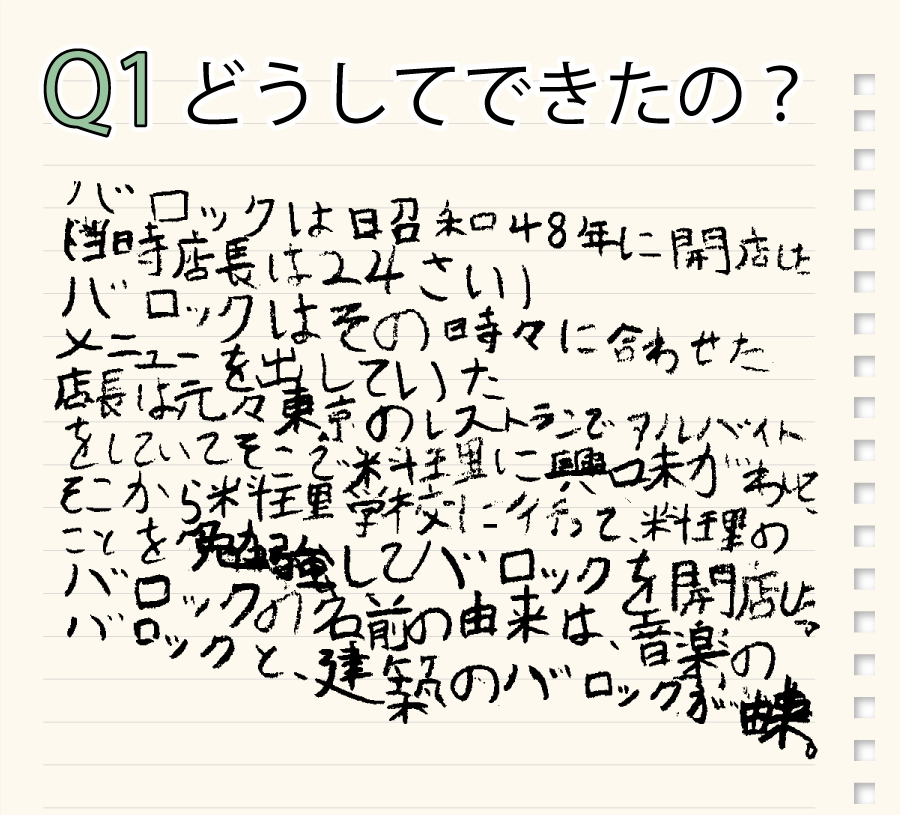 Q1 どうしてできたの？
バロックは日召和48年に開店した
(当時店長は24さい)
バロックはその時々に合わせた
メニューを出していた
店長は元々東京のレストランでアルバイト
をしていてそこで料理に興味がわいて、
そこから料理学校に行って、料理の
ことを勉強してバロックを開店した。
バロックの名前の由来は、音楽の
バロックと、建築のバロックが由来。